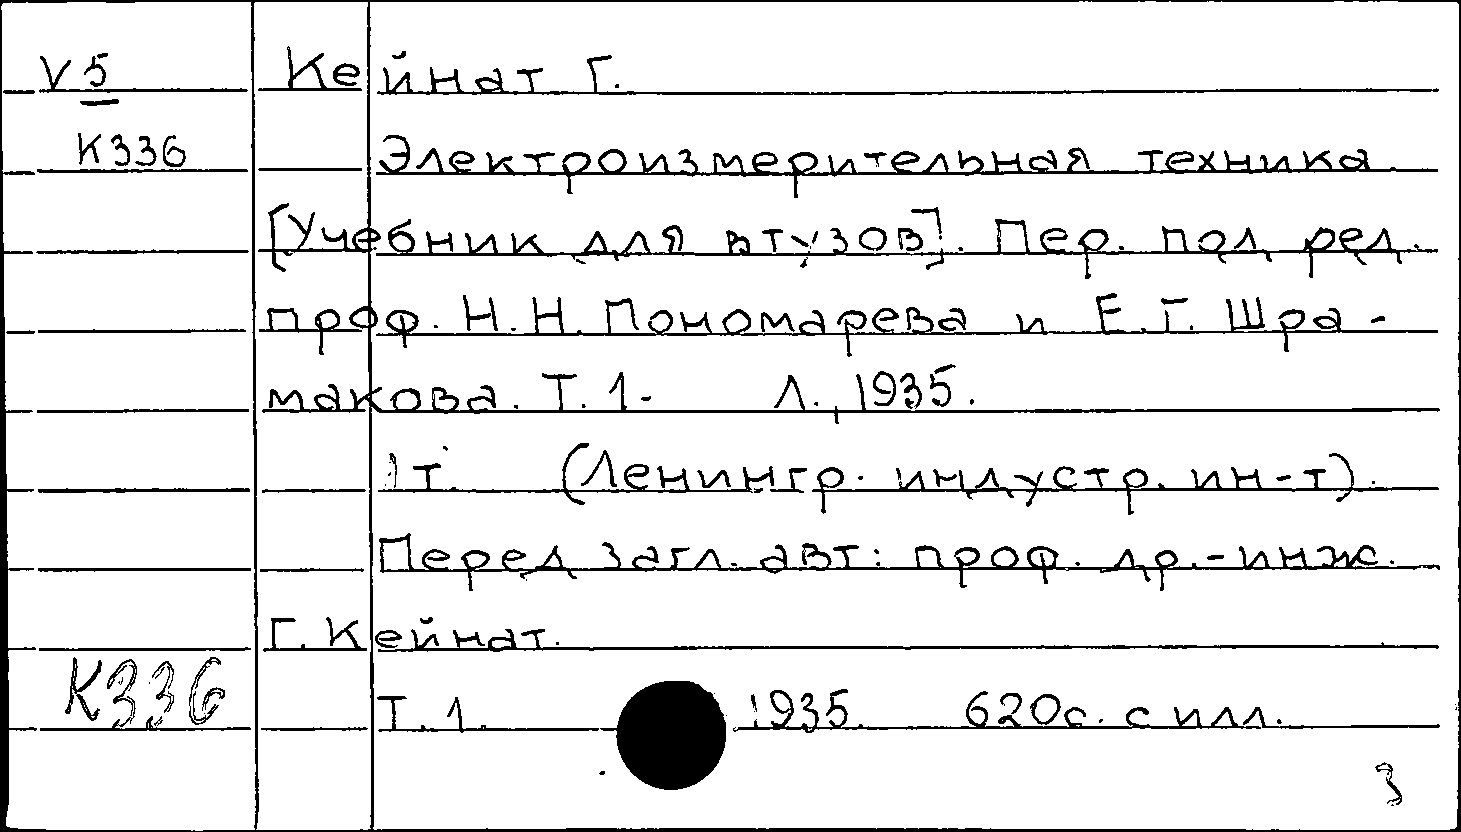 V 5 Кейнат Г.
К336 Электроизмерительная техника
[Учебник для втузов]. Пер. под ред.
проф. Н.Н. Пономарева и Е.Г. Шра-
макова. Т. 1- Л., 1935.
1т. (Ленингр. индустр. ин-т).
Перед загл. авт: проф. др.-инж.
Г. Кейнат.
К336 Т. 1. 1935. 620с. с илл.
3